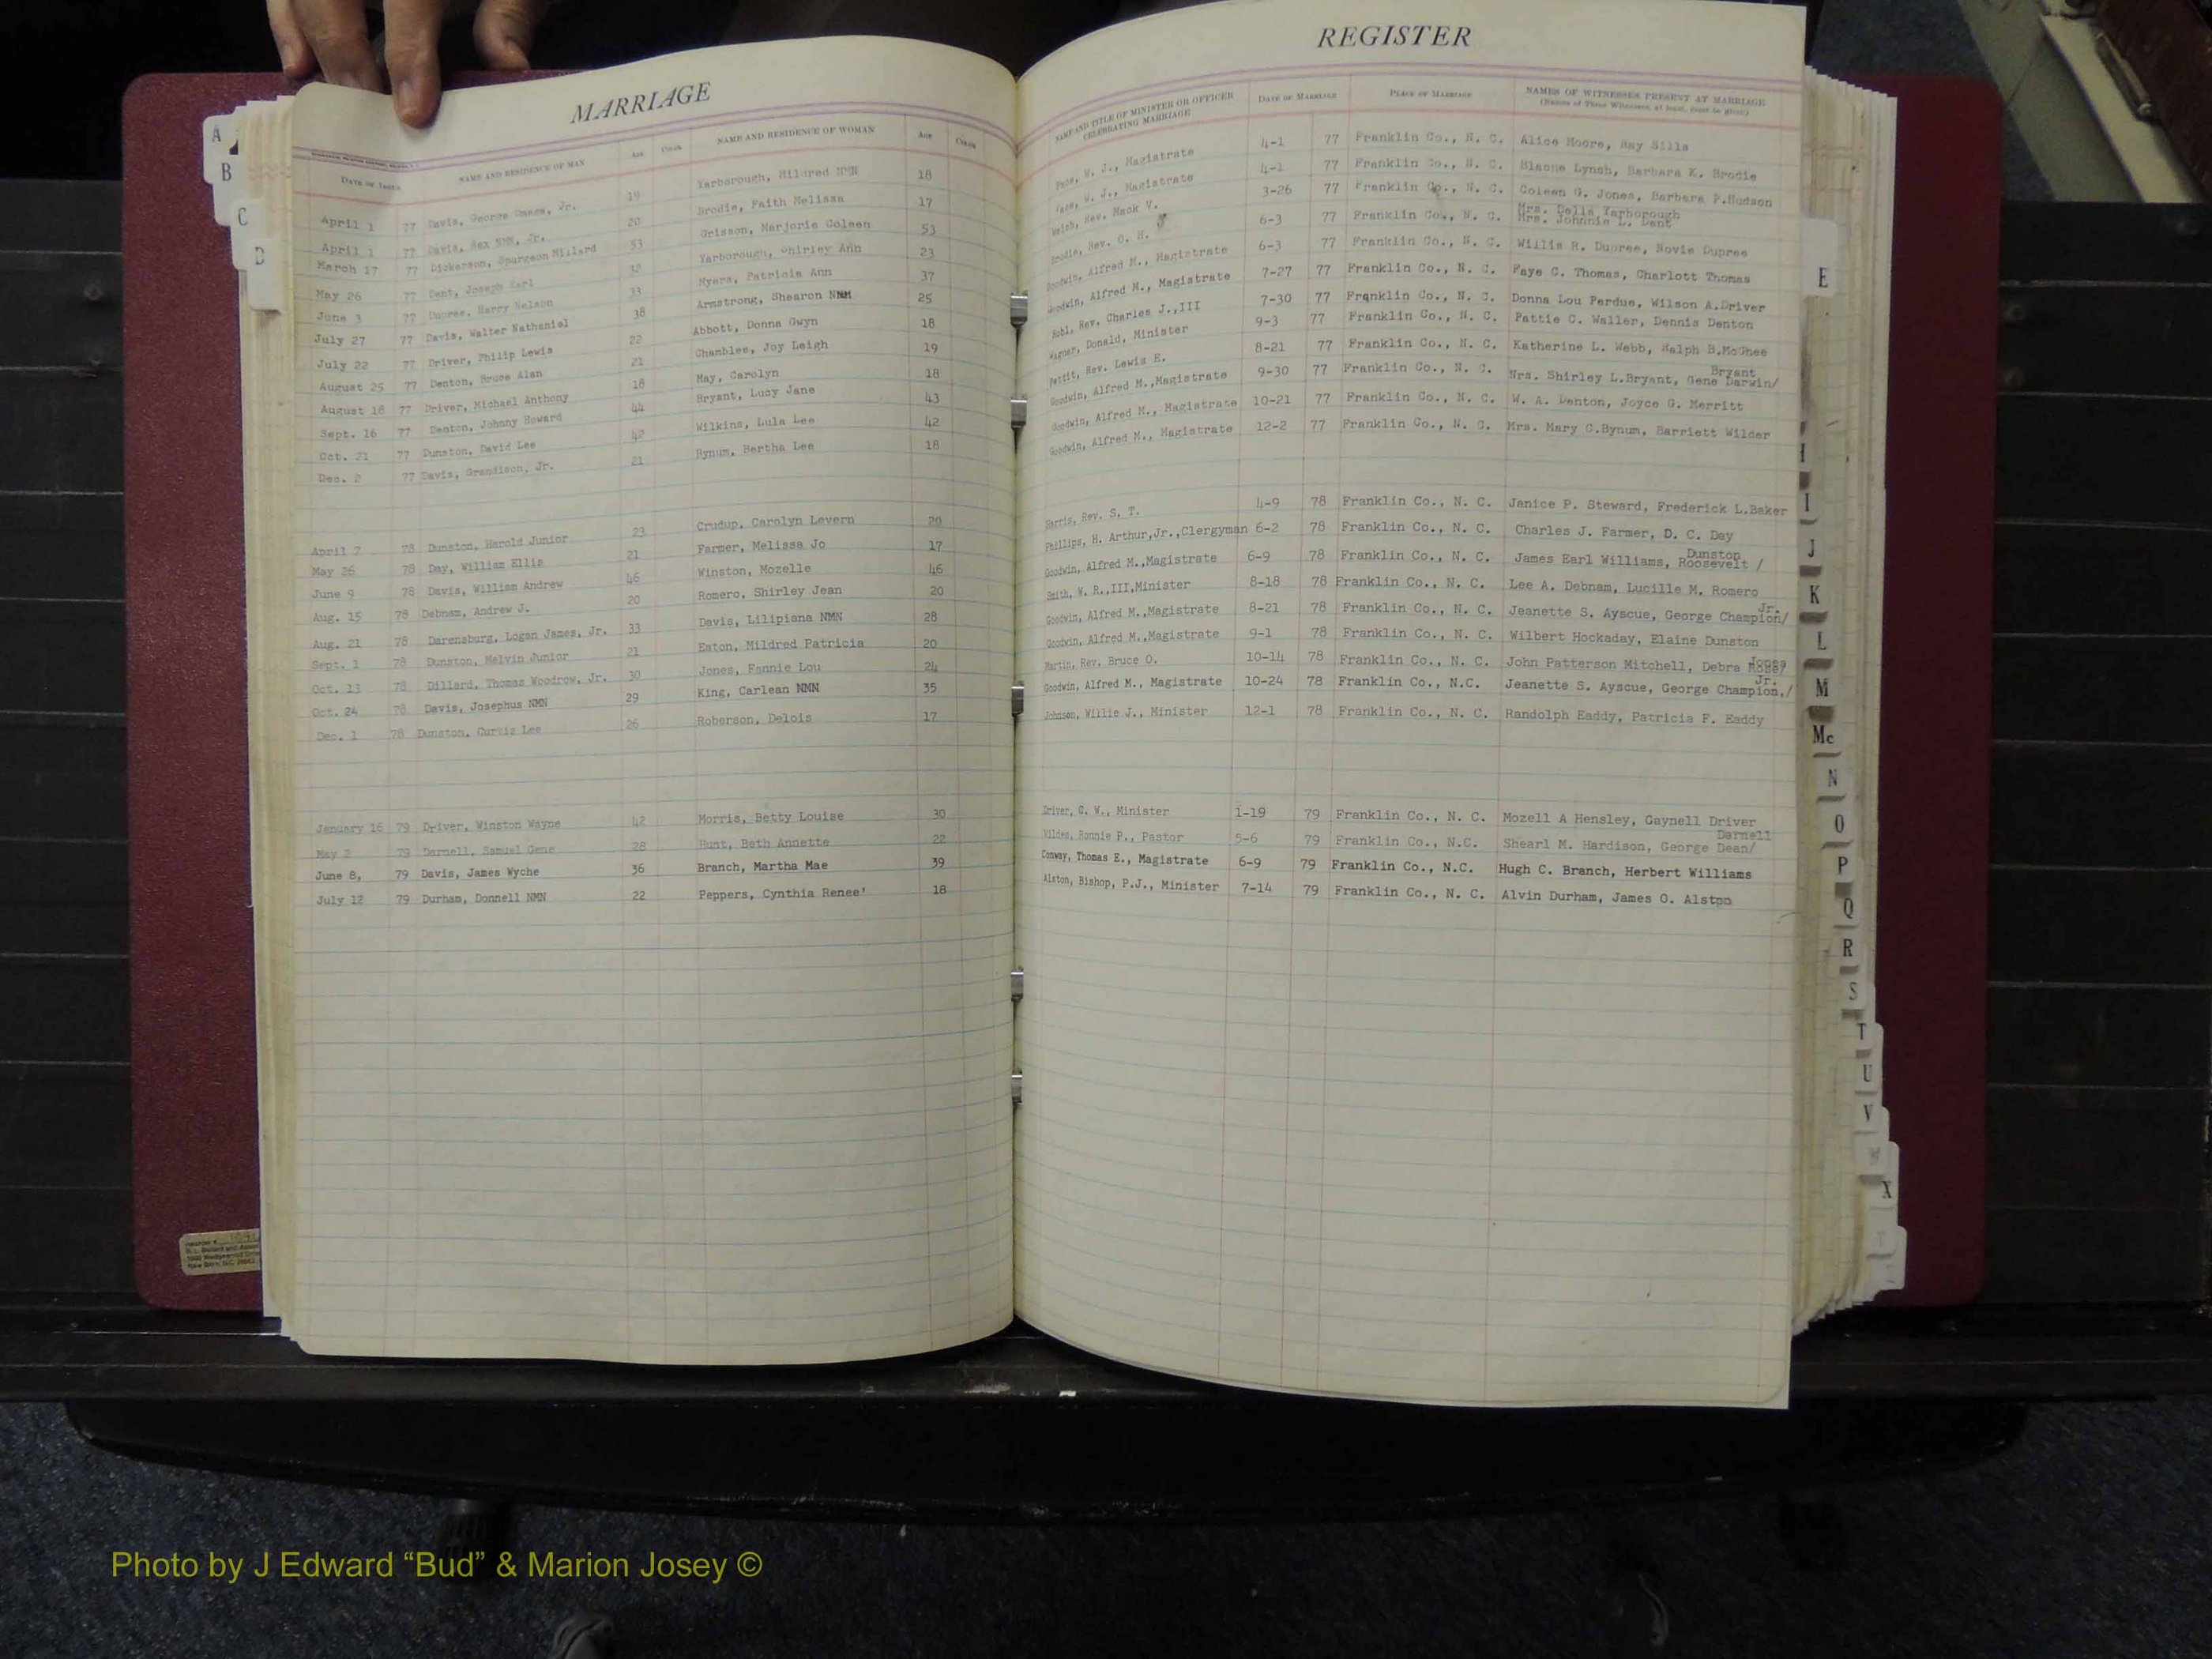 MARRIAGE
DATE OF ISSUE NAME AND RESIDENCE OF MAN AGE COLOR NAME AND RESIDENCE OF WOMAN AGE COLOR
April 1 77 Davis, George Jr. 19 Yarborough, Mildred NMN 18
April 1 77 Davis, Rex NMN, Jr. 20 Brodie, Faith Melissa 17
March 17 77 Dickerson, Spurgeon Millard 53 Grissom, Marjorie Coleen 53
May 26 77 Dent, Joseph Earl Yarborough, Shirley Ann 23
June 3 77 Dupree, Harry Nelson 33 Myers, Patricia Ann 37
July 27 77 Davis, Walter Nathaniel 38 Armstrong, Shearon NMN 25
July 22 77 Driver, Philip Lewis 22 Abbott, Donna Gwyn 18
August 25 77 Denton, Bruce Alan 21 Chamblee, Joy Leigh 19
August 18 77 Driver, Michael Anthony 18 May, Carolyn 18
Sept. 16 77 Denton, Johnny Howard 44 Bryant, Lucy Jane 43
Oct. 21 77 Dunston, David Lee 42 Wilkins, Lula Lee 42
Dec. 2 77 Davis, Grandison, Jr. 21 Bynum, Bertha Lee 18
April 7 78 Dunston, Harold Junior 23 Crudup, Carolyn Levern 20
May 26 78 Day, William Ellis 21 Farmer, Melissa Jo 17
June 9 78 Davis, William Andrew 46 Winston, Mozelle 46
Aug. 15 78 Debnam, Andrew J. 20 Romero, Shirley Jean 20
Aug. 21 78 Darensburg, Logan James, Jr. 33 Davis, Lilipiana NMN 28
Sept. 1 78 Dunston, Melvin Junior 21 Eaton, Mildred Patricia 20
Oct. 13 78 Dillard, Thomas Woodrow, Jr. 30 Jones, Fannie Lou 24
Oct. 24 78 Davis, Josephus NMN 29 King, Carlean NMN 35
Dec. 1 78 Dunston, Curtis Lee 26 Roberson, Delois 17
January 16 79 Driver, Winston Wayne 42 Morris, Betty Louise 30
May 2 79 Darnell, Samuel Gene 28 Hunt, Beth Annette 22
June 8, 79 Davis, James Wyche 36 Branch, Martha Mae 39
July 12 79 Durham, Donnell NMN 22 Peppers, Cynthia Renee' 18
REGISTER
NAME AND TITLE OF MINISTER OR OFFICER CELEBRATING MARRIAGE DATE OF MARRIAGE PLACE OF MARRIAGE NAMES OF WITNESSES PRESENT AT MARRIAGE
(Names of Three Witnesses, at least, must be given)
W. J., Magistrate 4-1 77 Franklin Co., N. C. Alice Moore, Ray Sills
W. J., Magistrate 4-1 77 Franklin Co., N. C. Blaone Lynch, Barbara K. Brodie
Welch, Rev. Mack V. 3-26 77 Franklin Co., N. C. Coleen G. Jones, Barbara P.Hudson
Brodie, Rev. O. H. 6-3 77 Franklin Co., N. C. Mrs. Della Yarborough
Mrs. Johnnie L. Dent
Goodwin, Alfred M., Magistrate 6-3 77 Franklin Co., N. C. Willis R. Dupree, Novie Dupree
Goodwin, Alfred M., Magistrate 7-27 77 Franklin Co., N. C. Faye C. Thomas, Charlott Thomas
Rev. Charles J.,III 7-30 77 Franklin Co., N. C. Donna Lou Perdue, Wilson A.Driver
Wagner, Donald, Minister 9-3 77 Franklin Co., N. C. Pattie C. Waller, Dennis Denton
Pettit, Rev. Lewis E. 8-21 77 Franklin Co., N. C. Katherine L. Webb, Ralph B.McGhee
Goodwin, Alfred M.,Magistrate 9-30 77 Franklin Co., N. C. Mrs. Shirley L.Bryant, Gene Darwin/ Bryant
Goodwin, Alfred M., Magistrate 10-21 77 Franklin Co., N. C. W. A. Denton, Joyce G. Merritt
Goodwin, Alfred M., Magistrate 12-2 77 Franklin Co., N. C. Mrs. Mary C.Bynum, Barriett Wilder
Harris, Rev. S. T. 4-9 78 Franklin Co., N. C. Janice P. Steward, Frederick L.Baker
Phillips, H. Arthur,Jr.,Clergyman 6-2 78 Franklin Co., N. C. Charles J. Farmer, D. C. Day
Goodwin, Alfred M.,Magistrate 6-9 78 Franklin Co., N. C. James Earl Williams, Roosevelt / Dunston
Smith, W. R.,III,Minister 8-18 78 Franklin Co., N. C. Lee A. Debnam, Lucille M. Romero
Goodwin, Alfred M.,Magistrate 8-21 78 Franklin Co., N. C. Jeanette S. Ayscue, George Champion/ Jr.
Goodwin, Alfred M.,Magistrate 9-1 78 Franklin Co., N. C. Wilbert Hockaday, Elaine Dunston
Martin, Rev. Bruce O. 10-14 78 Franklin Co., N. C. John Patterson Mitchell, Debra Jones
Goodwin, Alfred M., Magistrate 10-24 78 Franklin Co., N.C. Jeanette S. Ayscue, George Champion,/ Jr.
Johnson, Willie J., Minister 12-1 78 Franklin Co., N. C. Randolph Eaddy, Patricia F. Eaddy
Driver, C. W., Minister 1-19 79 Franklin Co., N. C. Mozell A Hensley, Gaynell Driver
Wildes, Ronnie P., Pastor 5-6 79 Franklin Co., N.C. Shearl M. Hardison, George Dean/ Darnell
Conway, Thomas E., Magistrate 6-9 79 Franklin Co., N.C. Hugh C. Branch, Herbert Williams
Alston, Bishop, P.J., Minister 7-14 79 Franklin Co., N. C. Alvin Durham, James O. Alston
A
B
C
D
E
H
I
J
K
L
M
Mc
N
O
P
Q
R
S
T
U
V
W
X
Y
Photo by J Edward “Bud” & Marion Josey ©